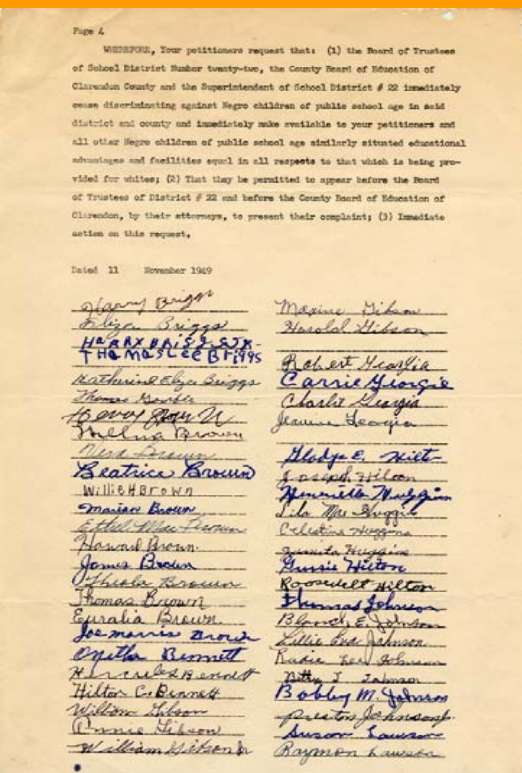 Page 4
WHEREFORE, Your petitioners request that: (1) the Board of Trustees
of School District Number twenty-two, the County Board of Education of
Clarendon County and the Superintendent of School District # 22 immediately
cease discriminating against Negro children of public school age in said
district and county and immediately make available to your petitioners and
all other Negro children of public school age similarly situated educational
advantages and facilities equal in all respects to that which is being pro-
vided for whites; (2) That they be permitted to appear before the Board
of Trustees of District # 22 and before the County Board of Education of
Clarendon, by their attorneys, to present their complaint; (3) Immediate
action on this request.
Dated 11 November 1949
Harry Briggs
Eliza Briggs
HARRY BRIGGS JR.
THOMAS LEE BriggS
Katherine Eliza Briggs
Thomas Gamble
Henry Brown
Thelma Brown
Vera Brown
Beatrice Brown
Willie H Brown
Marian Brown
Ethel Mae Brown
Howard Brown
James Brown
Theola Brown
Thomas Brown
Euralia Brown
Joe Morris Brown
Onetha Bennett
Hercules Bennett
Hilton C. Bennett
William Gibson
Annie Gibson
William Gibson Jr
Maxine Gibson
Harold Gibson
Robert Georgia
Carrie Georgia
Charlie Georgia
Jervine Georgia
Gladys E. Hilton
Joseph Hilton
Henrietta Huggins
Lila Mae Huggins
Celestine Huggins
Juanita Huggins
Gussie Hilton
Roosevelt Hilton
Thomas Johnson
Blanch E. Johnson
Lillie Eva Johnson
Rubie Lee Johnson
Betty J. Johnson
Bobby M. Johnson
Preston Johnson Jr.
Susan Lawson
Raymon Lawson